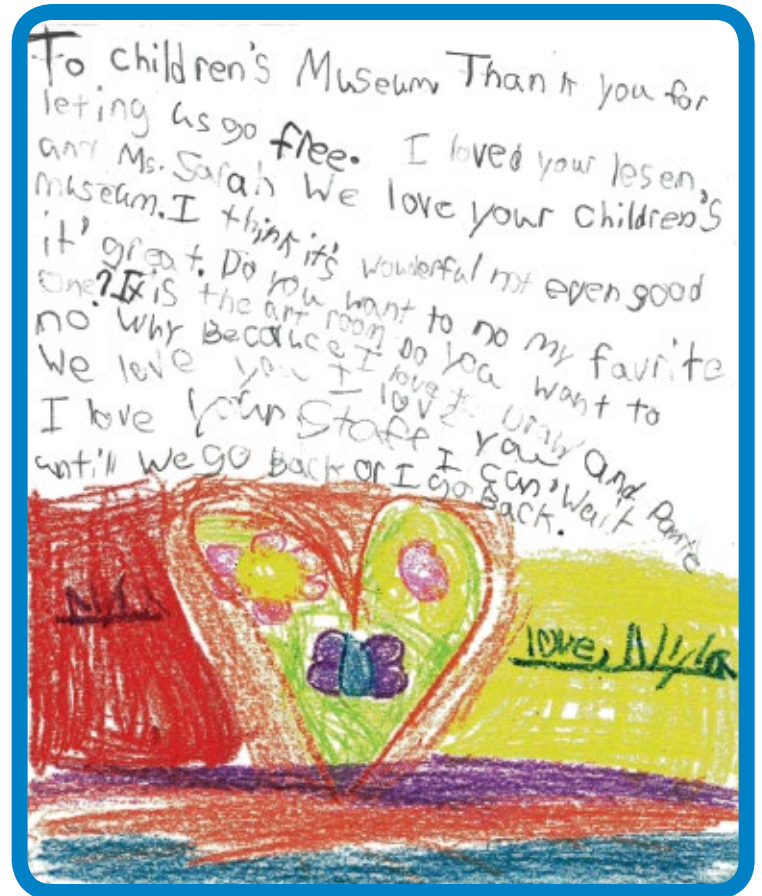 To children's Museum Thank you for
leting us go free. I loved your lesen,
and Ms. Sarah We love your children's
museum. I think it's wonderful not even good
it' great. Do you want to no my favrite
one? It is the art room Do you want to
no why Becaluce I love to Draw and Pante
We love you I love you
I love your Staff I can't wait
untill we go Back or I go Back.
Nyla
love, Nyla